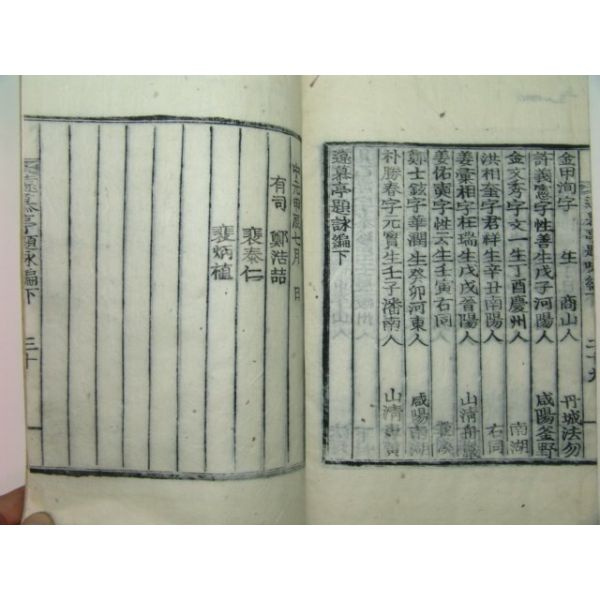 金甲洵字 生 商山人 丹城法勿
許義憲字性善生戊子河陽人 咸陽釜野
金文秀字文一生丁酉慶州人 南湖
洪相奎字君祥生辛丑南陽人 右同
姜彙相字柱瑞生戊戌首陽人 山清
姜佑奭字性云生壬寅右同
鄭士鉉字華潤生癸卯河東人 咸陽南湖
朴勝春字元實生壬子潘南人 山清
遠慕亭題詠編下
中元甲辰七月 日
有司 鄭浩喆
裵泰仁
裵炳植
遠慕亭題詠編下 三十